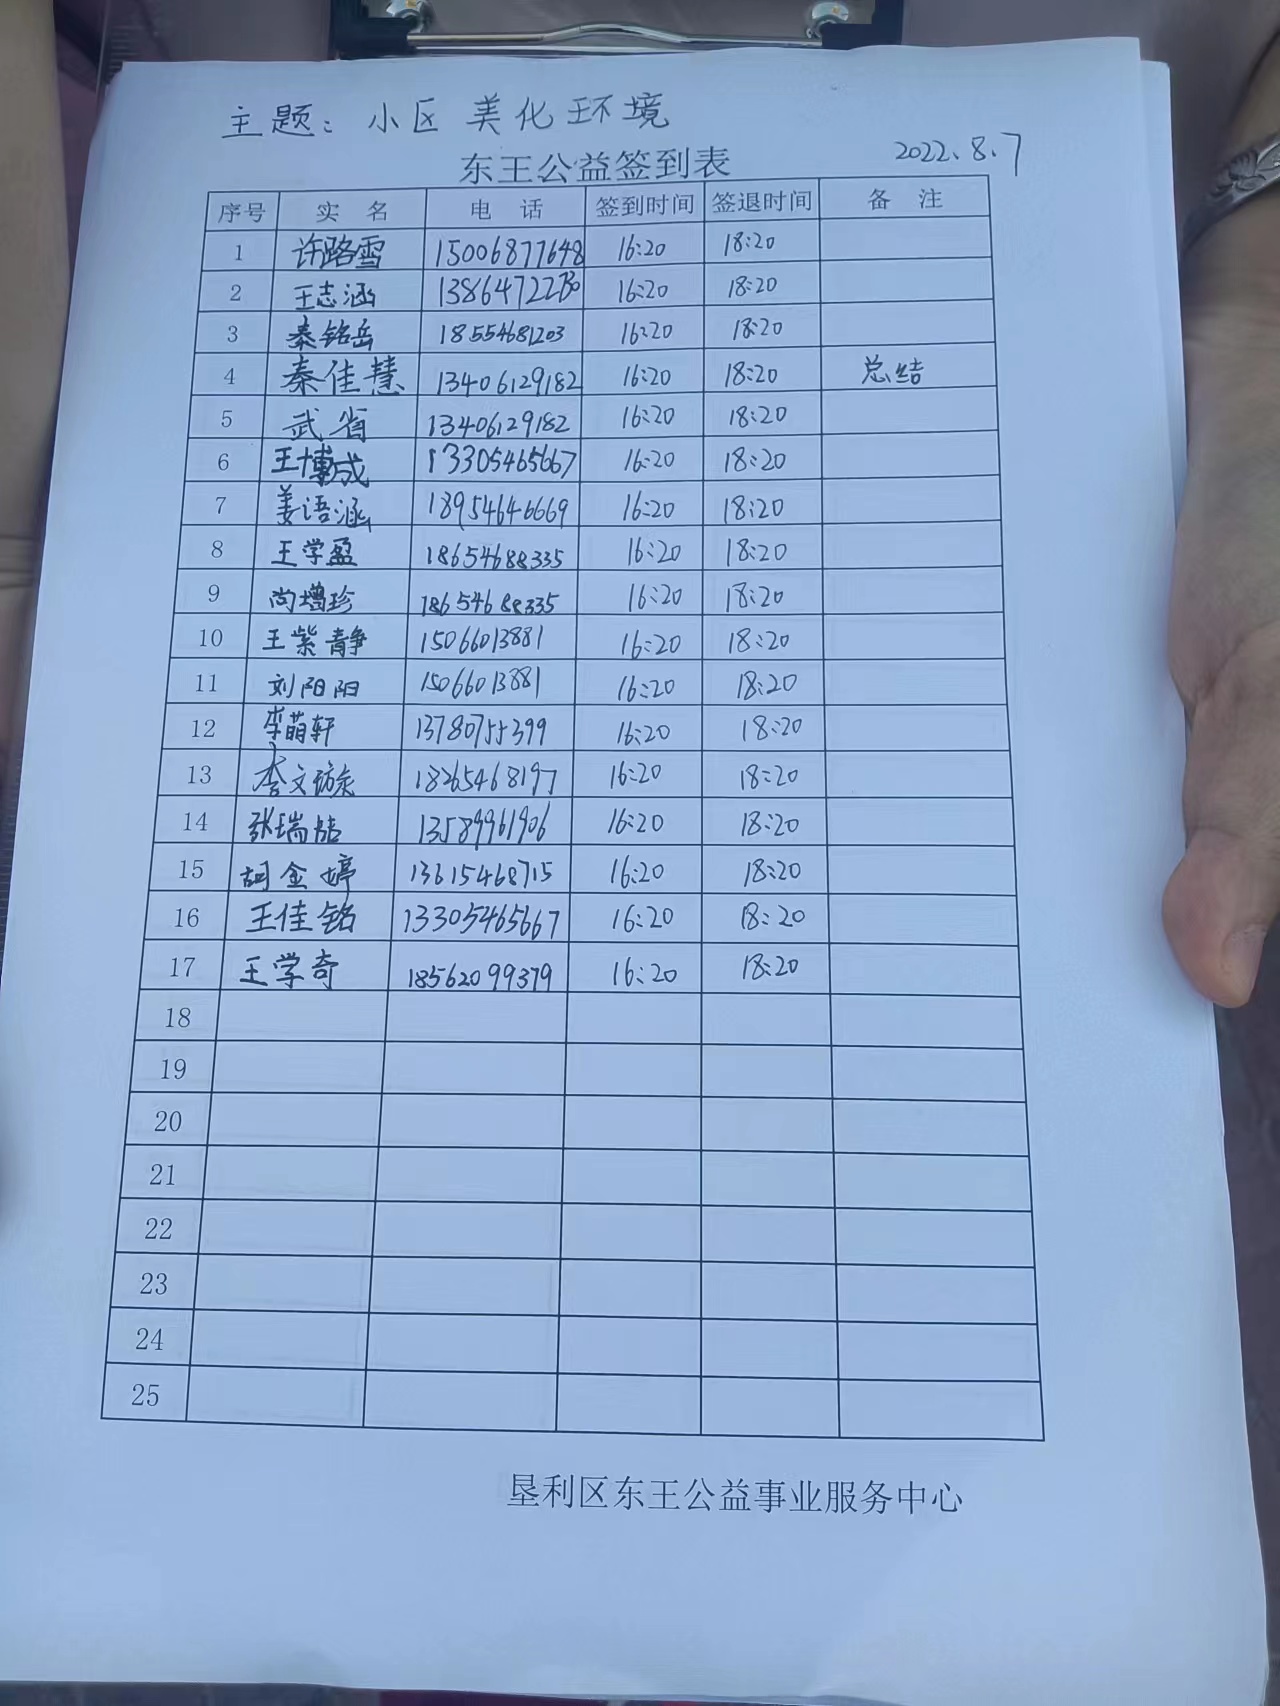 主题：小区美化环境
东王公益签到表 2022.8.7
序号 实名 电话 签到时间 签退时间 备注
1 许路雪 15006877648 16:20 18:20
2 王志涵 16:20 18:20
3 秦铭岳 18554681203 16:20 18:20
4 秦佳慧 13406129182 16:20 18:20 总结
5 武省 13406129182 16:20 18:20
6 王博成 13305465667 16:20 18:20
7 姜语涵 18954646669 16:20 18:20
8 王学盈 18654688335 16:20 18:20
9 尚增珍 18654688335 16:20 18:20
10 王紫静 15066013881 16:20 18:20
11 刘阳阳 15066013881 16:20 18:20
12 李萌轩 13780755399 16:20 18:20
13 李文 18265468197 16:20 18:20
14 张瑞 13589961906 16:20 18:20
15 胡金婷 13615468715 16:20 18:20
16 王佳铭 13305465667 16:20 18:20
17 王学奇 18562099379 16:20 18:20
18
19
20
21
22
23
24
25
垦利区东王公益事业服务中心